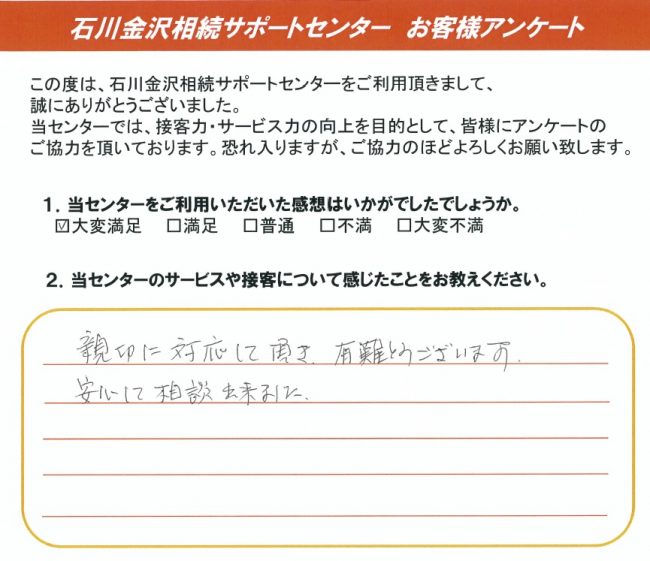 石川金沢相続サポートセンター お客様アンケート
この度は、石川金沢相続サポートセンターをご利用頂きまして、
誠にありがとうございました。
当センターでは、接客力・サービス力の向上を目的として、皆様にアンケートの
ご協力を頂いております。恐れ入りますが、ご協力のほどよろしくお願い致します。
1. 当センターをご利用いただいた感想はいかがでしたでしょうか。
☑大変満足 □満足 □普通 □不満 □大変不満
2. 当センターのサービスや接客について感じたことをお教えください。
親切に対応して頂き、有難とうございます。
安心して相談出来ました。